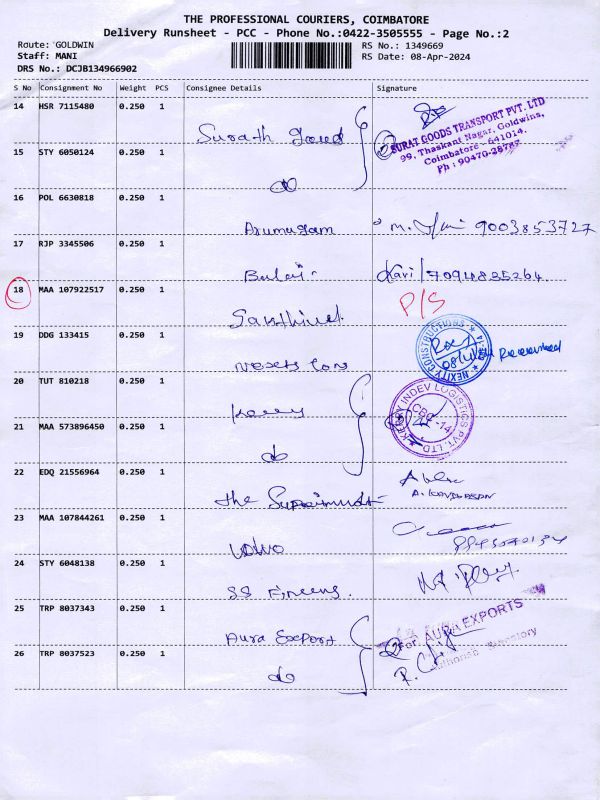 THE PROFESSIONAL COURIERS, COIMBATORE
Delivery Runsheet - PCC - Phone No.:0422-3505555 - Page No.:2
Route: GOLDWIN
Staff: MANI
DRS No.: DCJB134966902
RS No.: 1349669
RS Date: 08-Apr-2024
S No Consignment No Weight PCS Consignee Details Signature
14 HSR 7115480 0.250 1
SURAT GOODS TRANSPORT PVT. LTD
99, Thaskant Nagar, Goldwins,
Coimbatore - 641014.
Ph : 90470-28787
15 STY 6050124 0.250 1
do
16 POL 6630818 0.250 1
Arumugam M. 9003853727
17 RJP 3345506 0.250 1
Balaji Kavi/7094835264
18 MAA 107922517 0.250 1
P/S
19 DDG 133415 0.250 1
NEXITY CONSTRUCTIONS
Received
20 TUT 810218 0.250 1
KERRY INDEV LOGISTICS PVT. LTD
CBE-14
21 MAA 573896450 0.250 1
do
22 EDQ 21556964 0.250 1
The
23 MAA 107844261 0.250 1
Volvo
24 STY 6048138 0.250 1
SS
25 TRP 8037343 0.250 1
Aura Export
For AURA EXPORTS
26 TRP 8037523 0.250 1
do